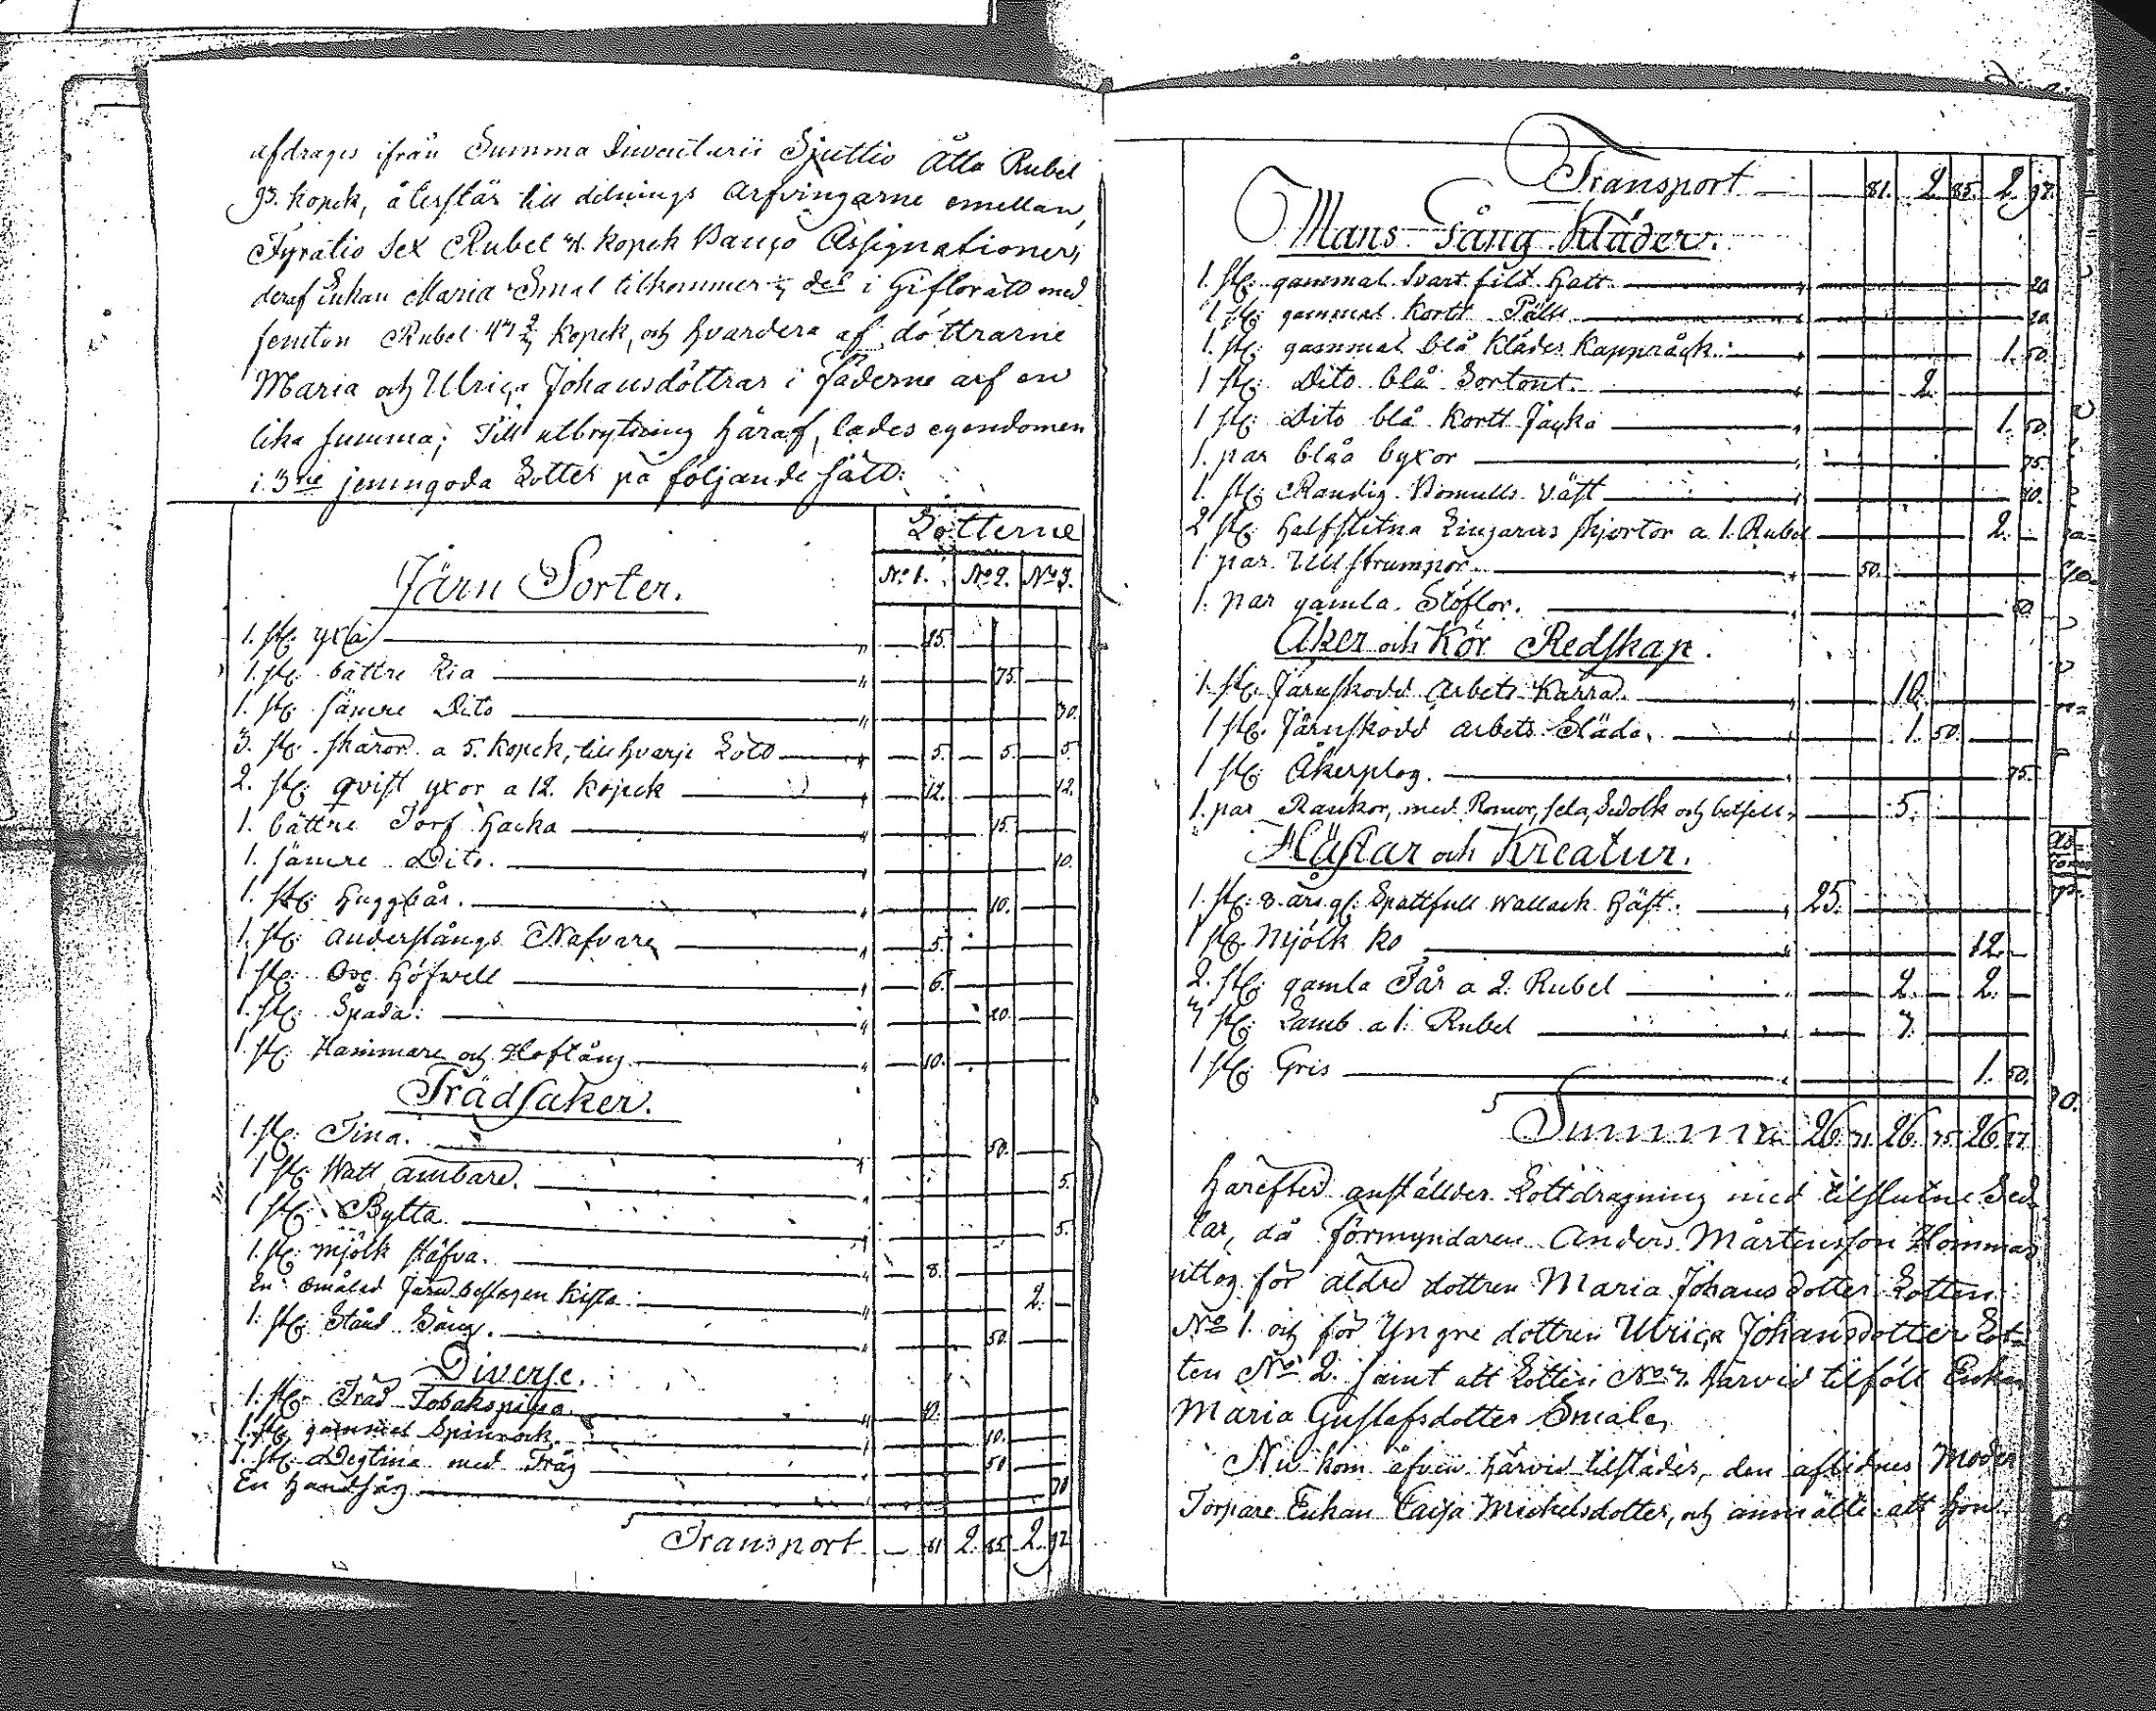 afdrages ifrån Summa Inventarii Sjuttio Åtta Rubel
93. kopek, återstår till delnings Arfvingarne emellan,
Fyratio Sex Rubel 42. kopek Banco Assignationer,
deraf Enkan Maria Smal tilkommer 1/3 del i Giftorätt med
femton Rubel 47 1/3 kopek, och hvardera af döttrarne
Maria och Ulrica Johansdöttrar i fäderne arf en
lika summa; Till utbrytning häraf, lades egendomen
i 3ne jemngoda Lotter på följande sätt:
Lotterne
Järn Sorter. No 1. No 2. No 3.
1. st. yxa " 15.
1. st. bättre Lia " 75.
1. st. sämre Dito " 30.
3. st. skäror a 5. kopek, till hvarje Lott " 5. 5. 5.
2. st. qvist yxor a 12. kopek " 12. 12.
1. bättre Torf hacka " 15.
1. sämre Dito. " 10.
1. st. huggbår. " 10.
1. st. anderstångs Nafvare " 5.
1. st. höfwell " 6.
1. st. Spada. " 20.
1. st. Hammare och Hoftång " 10.
Trädsaker.
1. st. Tina. " 50.
1 st. Watt ämbare. " 5.
1 st. Bytta. " 5.
1. st. mjölk stäfva. " 8.
En omålad Järnbeslagen kista " 2.
1. st. Stånd Säng. " 50.
Diverse.
1. st. Träd Tobakspipa. " 20.
1. st. gammal Spinrock. " 10.
1. st. Degtina med Tråg " 50
En handsåg " 20
Transport 81 2. 85. 2. 92
Transport 81. 2 85. 2. 92.
Mans Gång Kläder.
1. st. gammal svart filt hatt " 20
1 st. gammal kortt Päls " 20.
1. st. gammal blå klädes kappråck. " 1. 50.
1 st. Dito blå Sortout. " 2.
1 st. Dito blå kortt Jacka " 1. 50.
1. par blåa byxor " 75.
1. st. Randig Bomulls Väst " 40.
2 st. halfslitna Lingarns skjortor a 1. Rubel 2.
1 par Ull strumpor " 50.
1. par gamla Stöflor. " 50.
Åker och Kör Redskap.
1. st. Järnskodd arbets kärra. " 10.
1 st. Järnskodd arbets Släda. " 1. 50.
1 st. Åkerplog. " 75.
1. par Rankor, med Remor, sela, Sedolk och betsell " 5.
Hästar och Kreatur.
1. st. 8 års gl. Spattfull Wallack häst. " 25.
1 st. Mjölk ko " 12.
2. st. gamla Får a 2. Rubel " 2. 2.
7 st. Lamb a 1. Rubel " 7.
1 st. Gris " 1. 50.
Summa 26. 71. 26. 75. 26. 77
härefter anställdes Lottdragning med tilslutne Sed-
lar, då förmyndaren Anders Mårtensson Hommas
uttog för äldre dottren Maria Johansdotter Lotten
No 1. och för Yngre dottren Ulrica Johansdotter Lot-
ten No 2. samt att Lotten No 3. härvid tilföll Enkan
Maria Gustafsdotter Smal.
Nu kom äfven härvid tilstädes, den aflidnes Moder
Torpare Enkan Caisa Mickelsdotter, och anmälte att hon